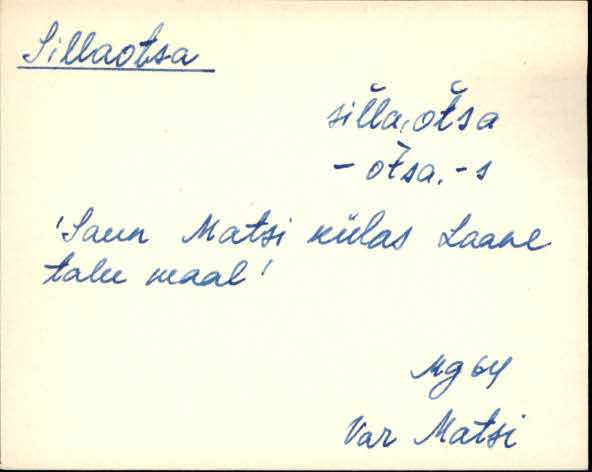 Sillaotsa
sil̆la,ot̆sa
- ot̆sa, -s
'Saun Matsi külas Laane
talu maal'
Mg 64
Var Matsi